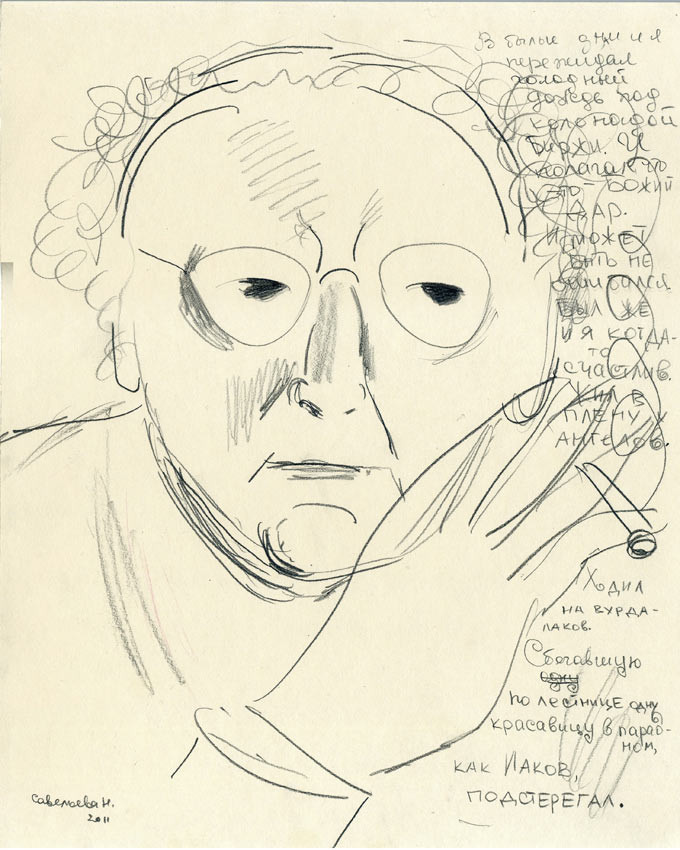 В былые дни и я
пережидал
холодный
дождь под
колонадой
Биржи. И
полагал что
это – божий
дар.
И может
быть не
ошибался.
Был же
и я когда-
то
счастлив.
Жил в
плену у
ангелов.
Ходил
на вурда-
лаков.
Сбегавшую
одну
по лестнице одну
красавицу в парад-
ном,
как Иаков,
подстерегал.
Савельева Н.
2011